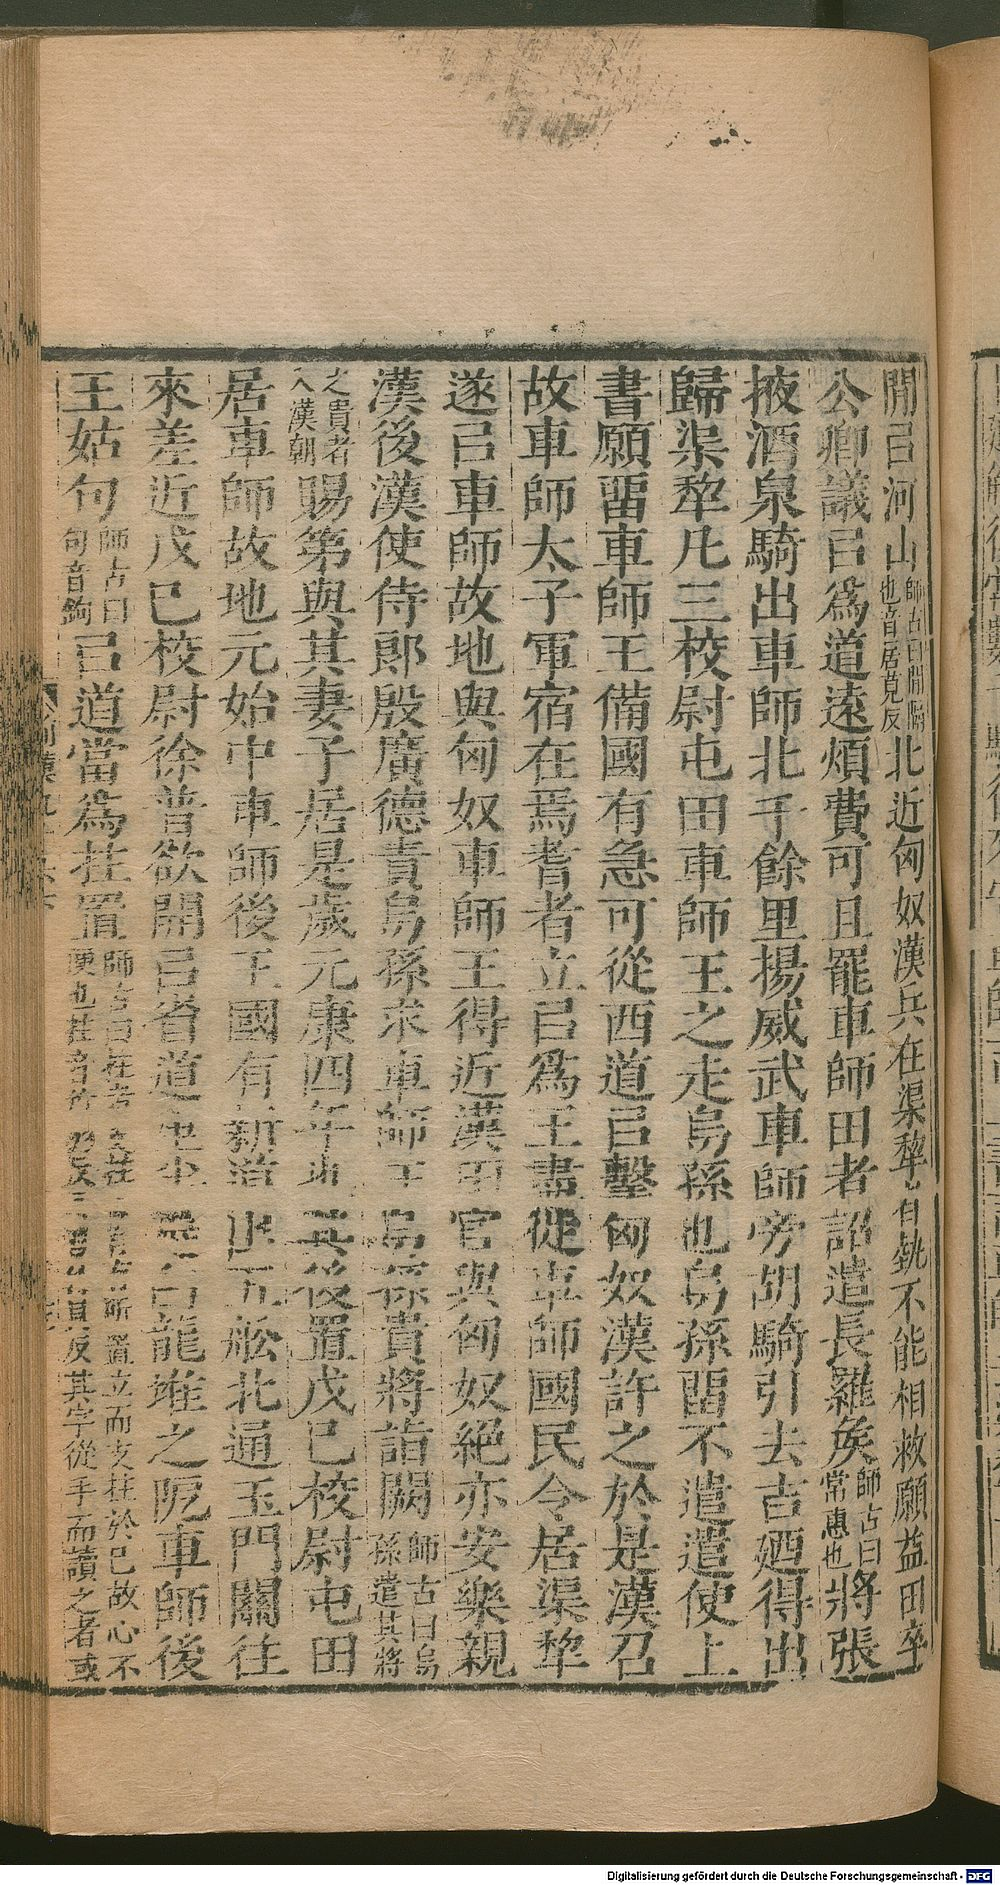 閒㠯河山師古曰閒隔也音居莧反北近匈奴漢兵在渠犂者埶不能相救願益田卒
公卿議㠯爲道遠煩費可且罷車師田者詔遣長羅矦師古曰常惠也將張
掖酒泉騎出車師北千餘里揚威武車師旁胡騎引去吉廼得出
歸渠犂凡三校尉屯田車師王之走烏孫也烏孫畱不遣遣使上
書願畱車師王備國有急可從西道㠯擊匈奴漢許之於是漢召
故車師太子軍宿在焉耆者立㠯爲王盡徙車師國民令居渠犂
遂㠯車師故地與匈奴車師王得近漢田官與匈奴絕亦安樂親
漢後漢使侍郎殷廣德責烏孫求車師王烏孫貴將詣闕師古曰烏孫遣其將
之貴者入漢朝賜第與其妻子居是歲元康四年也其後置戊已校尉屯田
居車師故地元始中車師後王國有新道出五船北通玉門關往
來差近戊已校尉徐普欲開㠯省道里半避白龍堆之阨車師後
王姑句師古曰句音鉤㠯道當爲拄置師古曰拄者支拄有所置立而支拄於已故心不便也拄音竹羽反其字從手而讀之者或
Digitalisierung gefördert durch die Deutsche Forschungsgemeinschaft - DFG